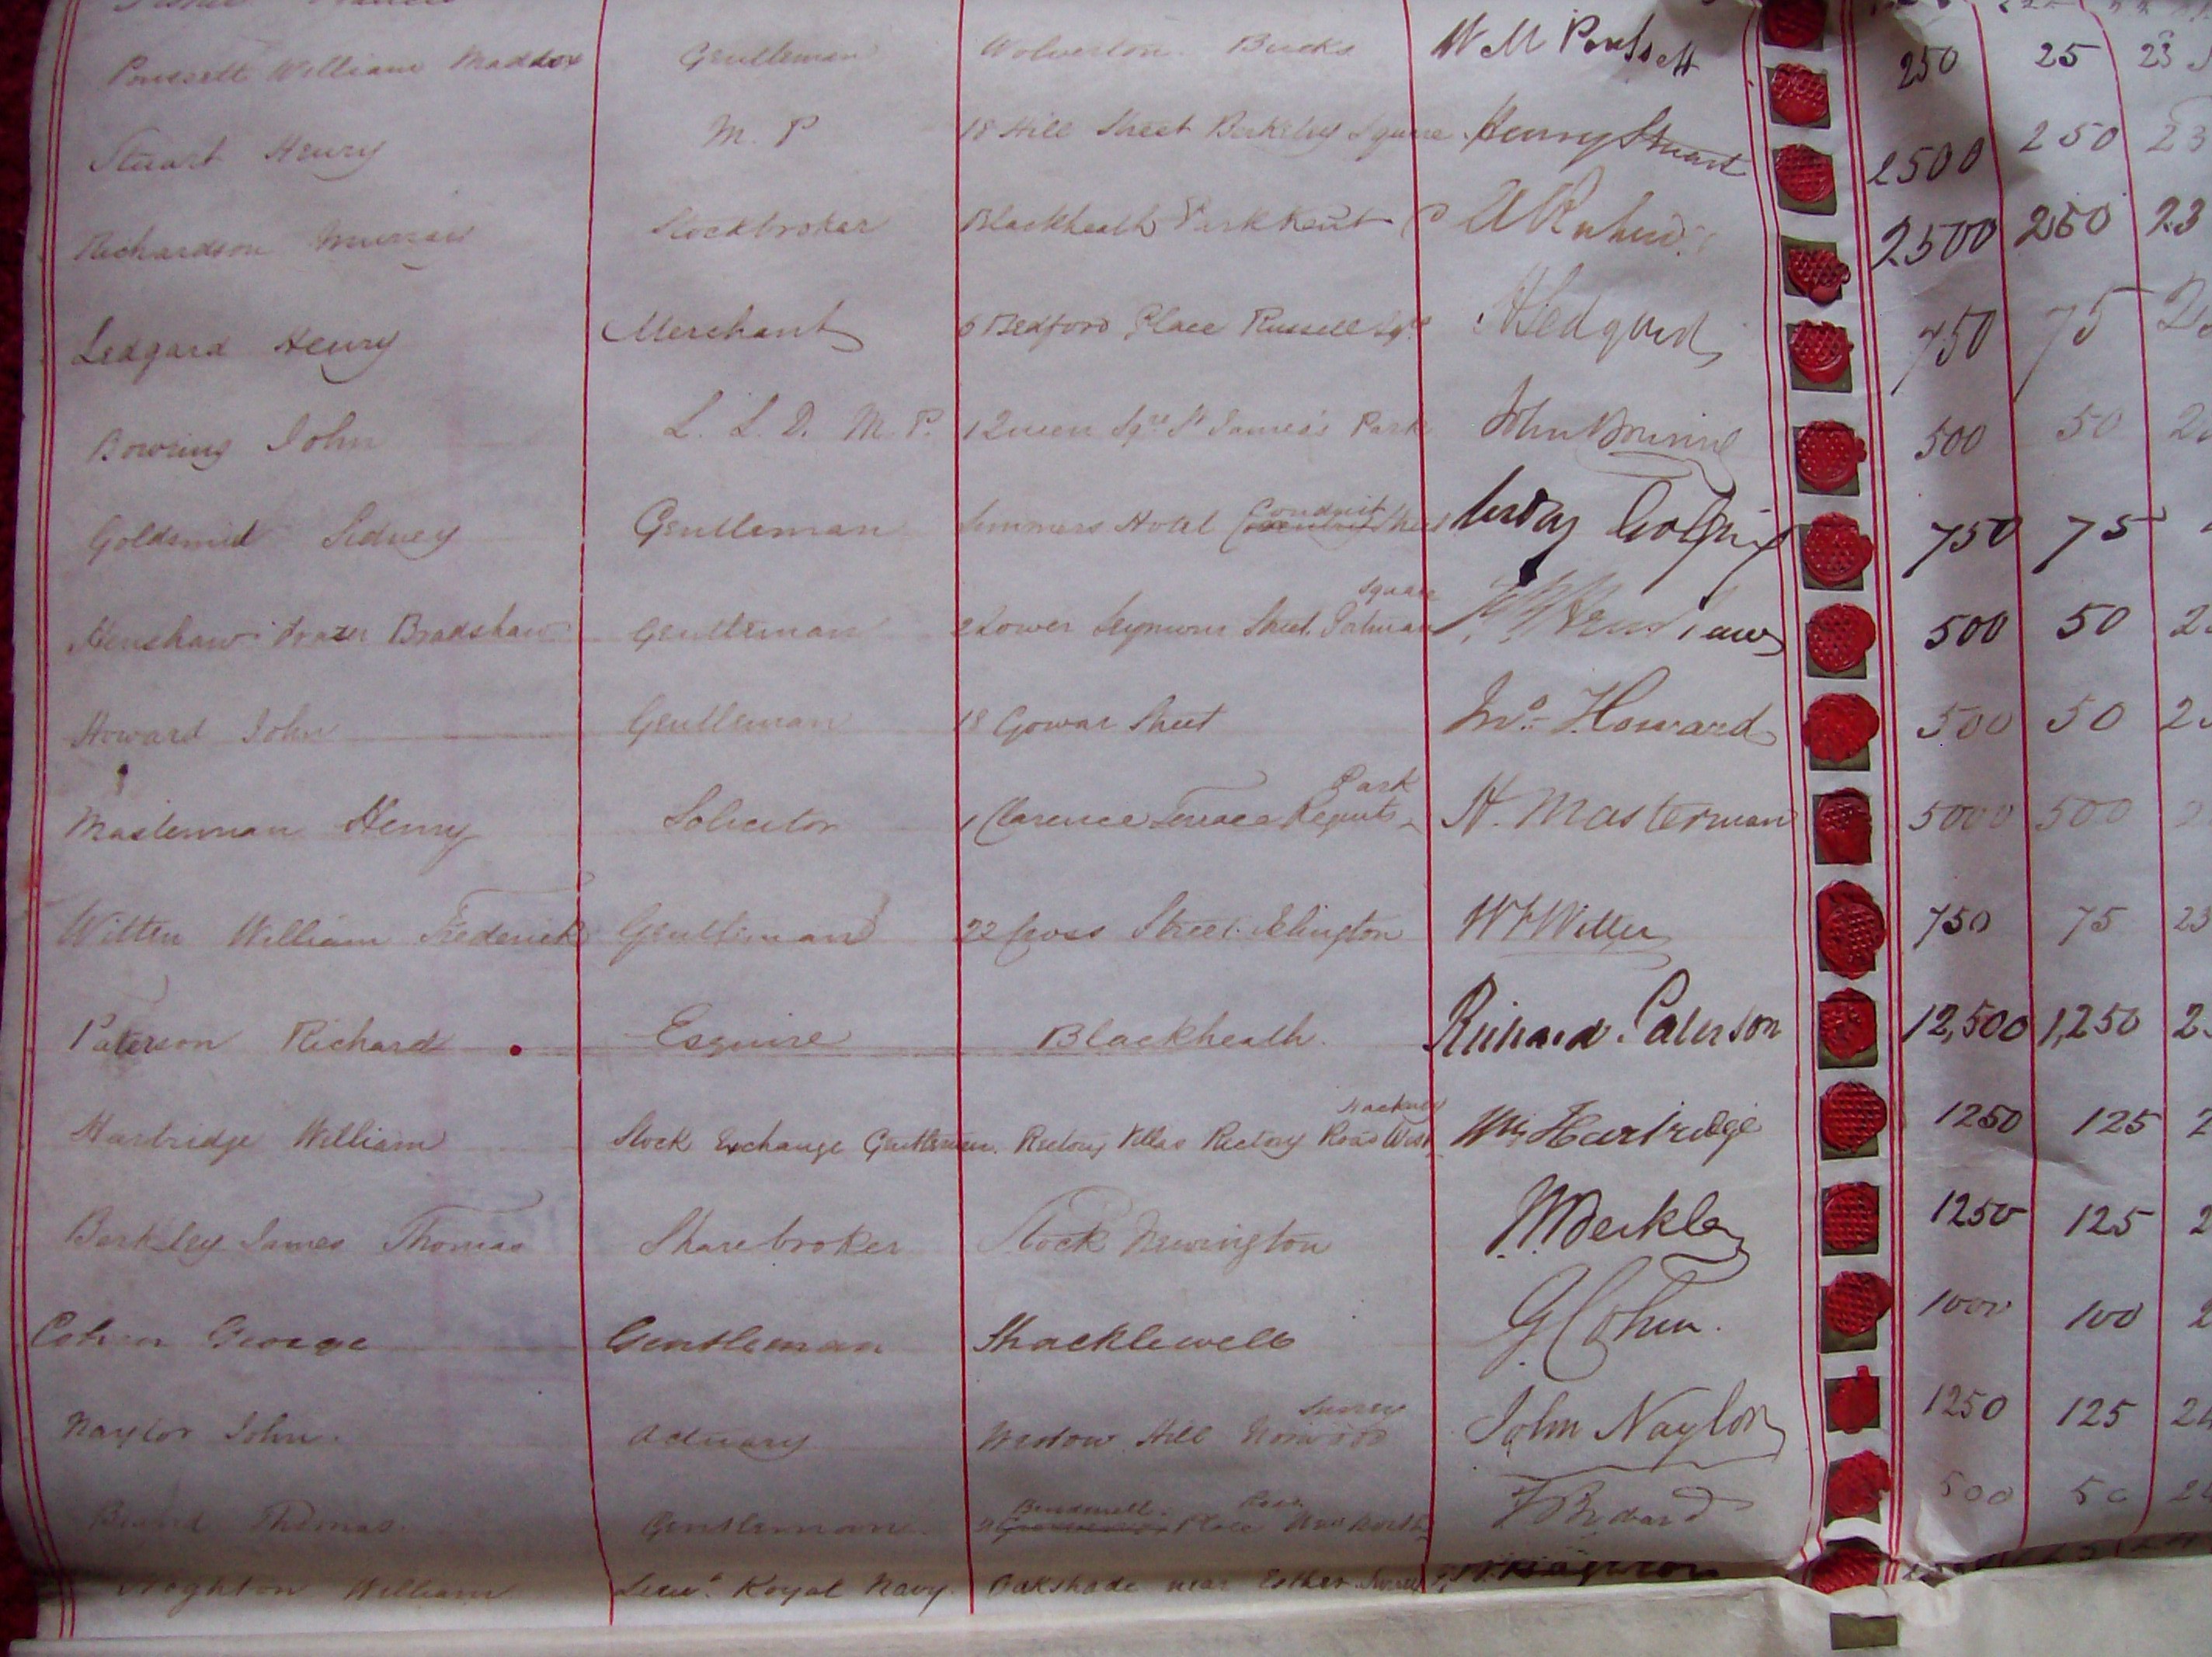 Poussett William Maddox Gentleman Wolverton Bucks W M Poussett 250 25 23
Stuart Henry M. P 18 Hill Street Berkeley Square Henry Stuart 2500 250 23
Richardson Stockbroker Blackheath Park Kent 2500 250 23
Ledgard Henry Merchant 6 Bedford Place Russell Sqre HLedgard 750 75
Bowring John L. L. D. M. P. 1 Queen Sqre St James's Park John Bowring 500 50
Goldsmid Sidney Gentleman Hotel Conduit Street 750 75
Henshaw Frazer Bradshaw Gentleman 2 Lower Seymour Street Portman Square 500 50
Howard John Gentleman 18 Gowar Street Jno. Howard 500 50
Masterman Henry Solicitor 1 Clarence Terrace Regents Park H. Masterman 5000 500
Witten William Frederick Gentleman 22 Cross Street Islington WFWitten 750 75 23
Paterson Richard Esquire Blackheath. Richard Paterson 12,500 1,250
Hartridge William Stock Exchange Gentleman. Rectory Villas Rectory Road West Hackney Wm Hartridge 1250 125
Berkley James Thomas Sharebroker Stock Newington 1250 125
George Gentleman Shacklewell 1000 100
Naylor John Actuary Hill Norwood Surrey John Naylor 1250 125
Thomas Gentleman Place 500 50
William Lieut. Royal Navy. Oakshade near Esther Surrey